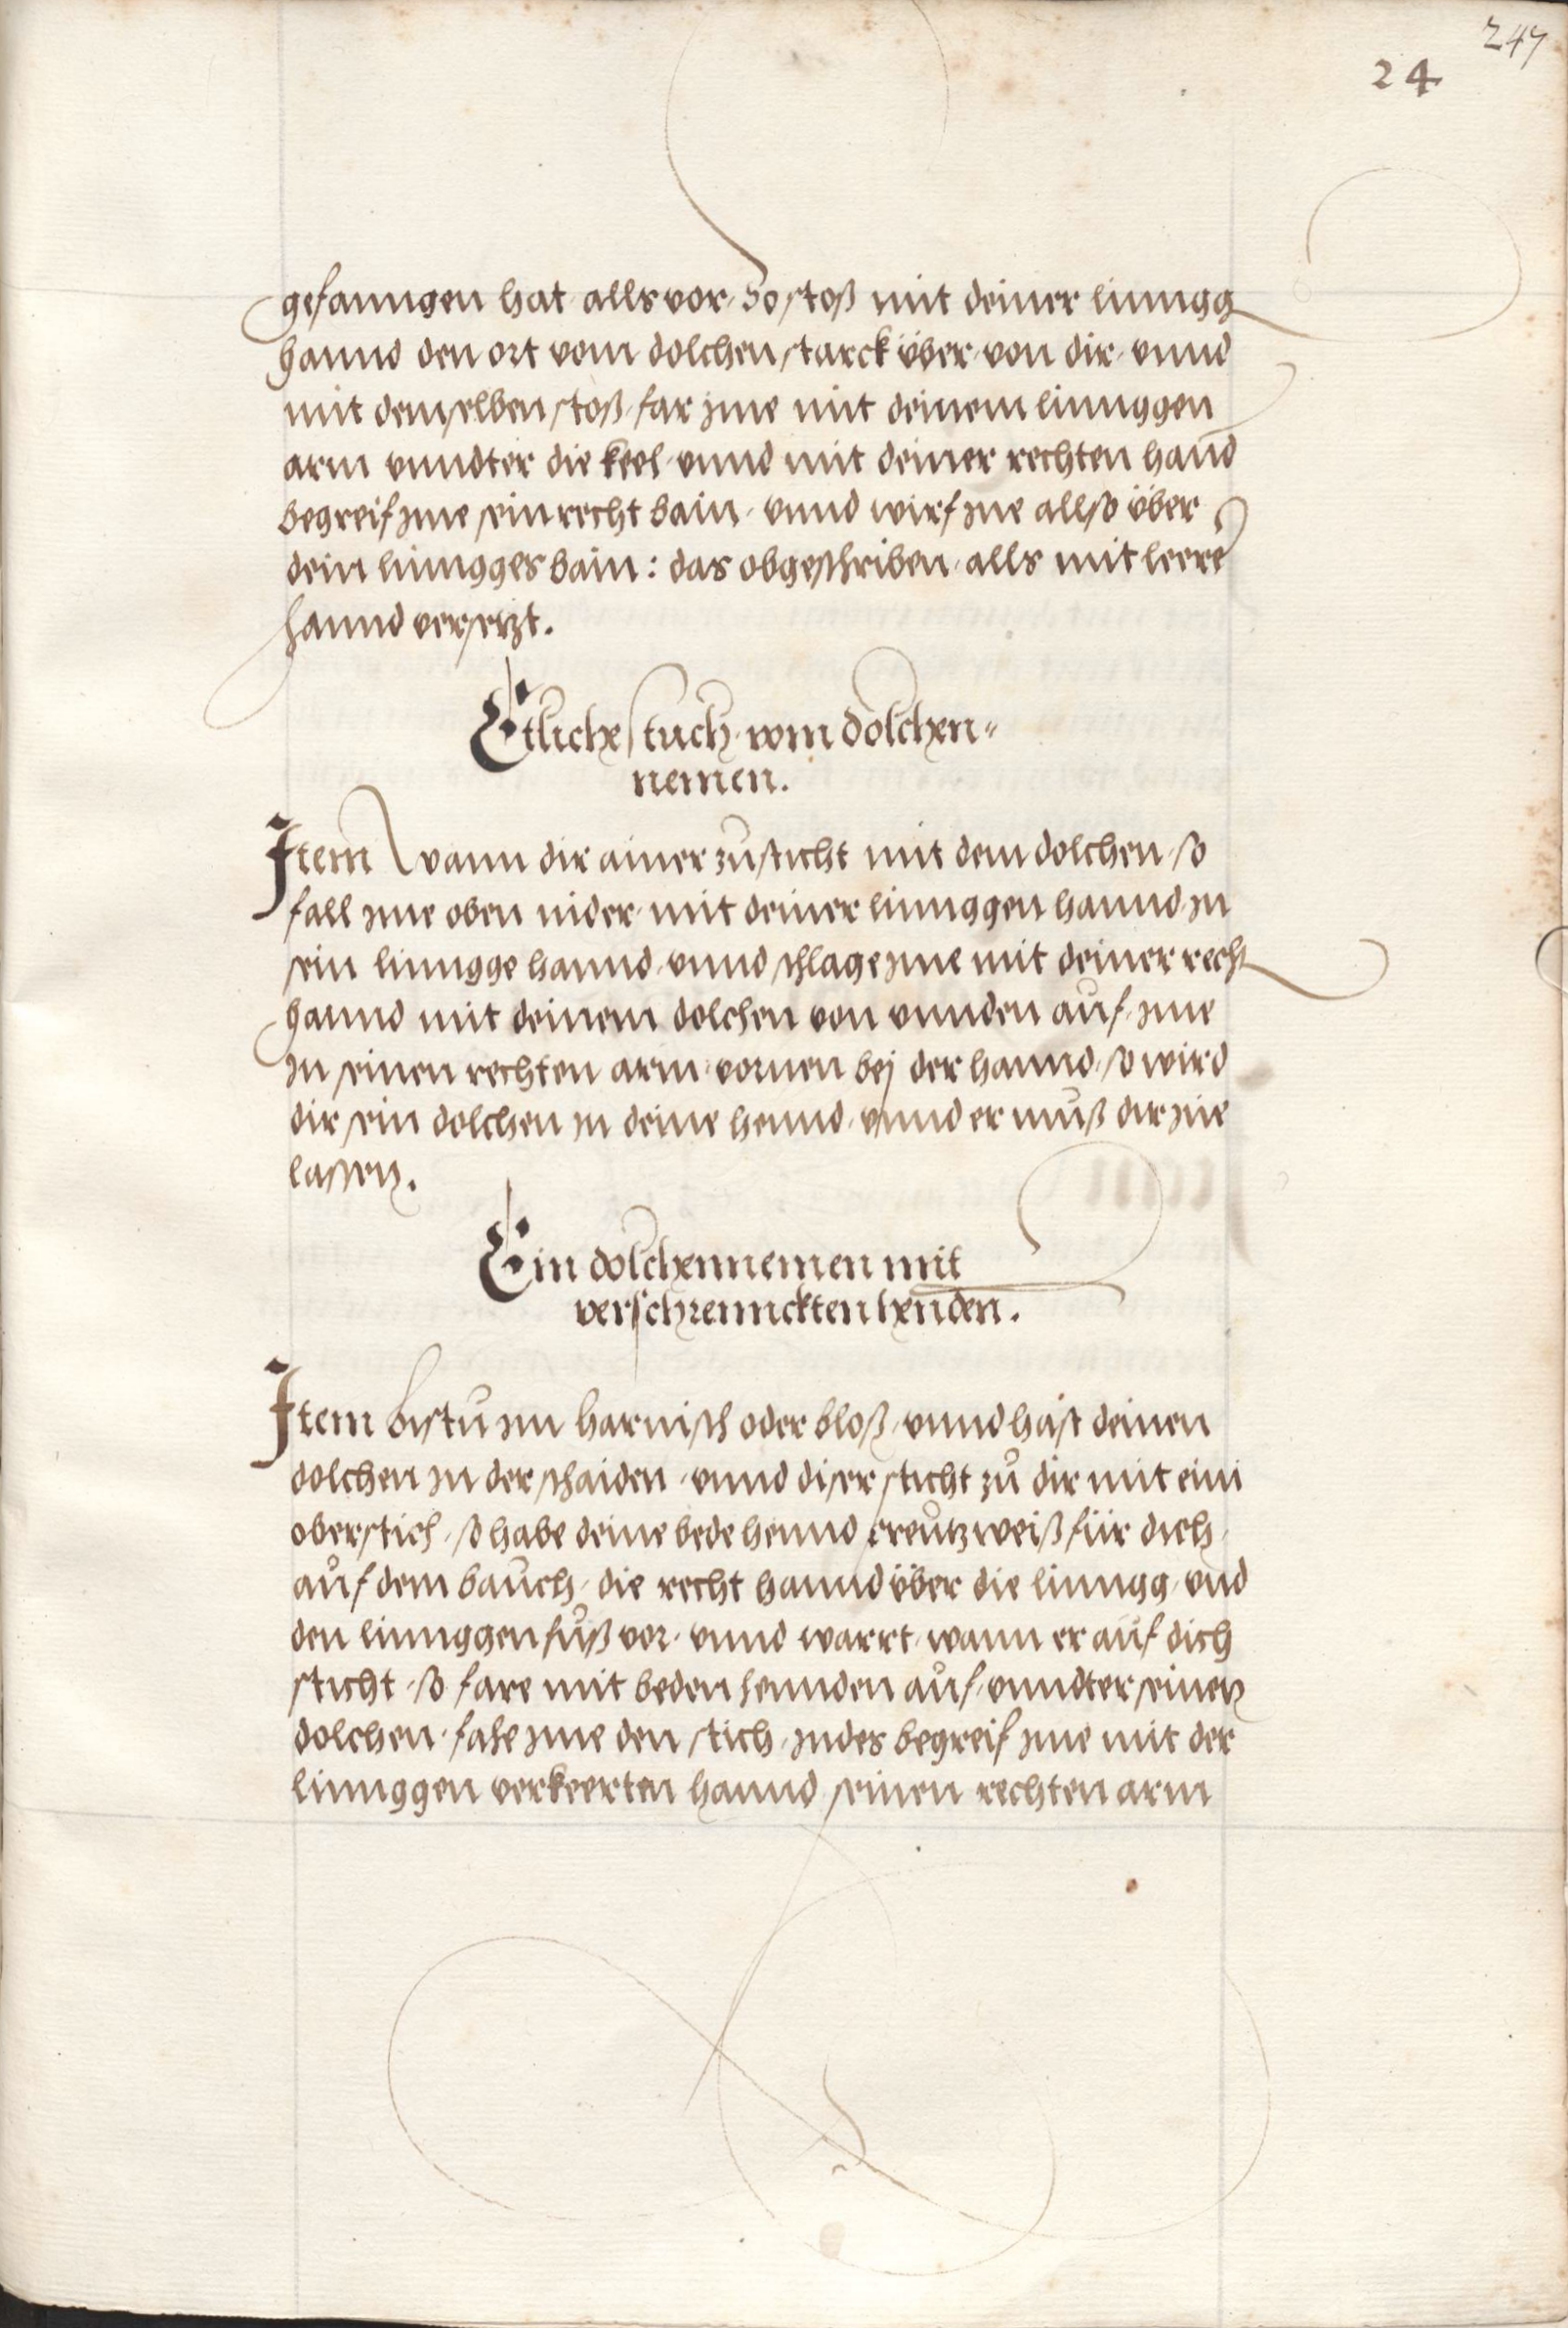 247
24
gefanngen hat, alls vor, So stoß mit deiner linngg
hannd den ort vom dolchen starck über, von dir, vnnd
mit demselben stoß, far jme mit deinem linnggen
arm vnndter die keel, vnnd mit deiner rechten hand
begreif jme sein recht bain, vnnd wirf jne allso über
dein linngges bain: das obgeschriben, alls mit leerē
hannd versetzt.
Etliche stuch vom dolchen⸗
nemen.
Item Wann dir ainer zusticht mit dem dolchen, so
fall jme oben nider, mit deiner linnggen hannd, jn
sein linngge hannd, vnnd schlage jme mit deiner recht
hannd mit deinem dolchen von vnnden auf, jme
jn seinen rechten arm, vornen bej der hannd, so wird
dir sein dolchen jn deine hennd, vnnd er muß dir jne
lassen.
Ein dolchennemen mit
verschrennckten henden.
Item bistu jm harnisch oder bloß, vnnd hast deinen
dolchen jn der schaiden, vnnd diser sticht zů dir mit eim
oberstich, so habe deine bede hennd creutzweiß für dich,
auf dem bauch, die recht hannd über die linngg, vnd
den linnggen fuß vor, vnnd warrt, wann er auf dich
sticht, so fare mit beden hennden auf, vnndter seinen
dolchen, fahe jme den stich, jndes begreif jme mit der
linnggen verkeerten hannd seinen rechten arm